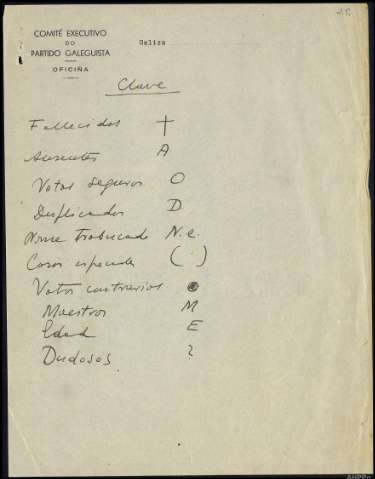 COMITÉ EXECUTIVO
DO
PARTIDO GALEGUISTA
OFICIÑA
Galiza
Clave
Fallecidos †
Ausentes A
Votos seguros O
Duplicados D
Nome trabucado N.e.
Casos especiales (·)
Votos contrarios ●
Maestros M
Edad E
Dudosos ?